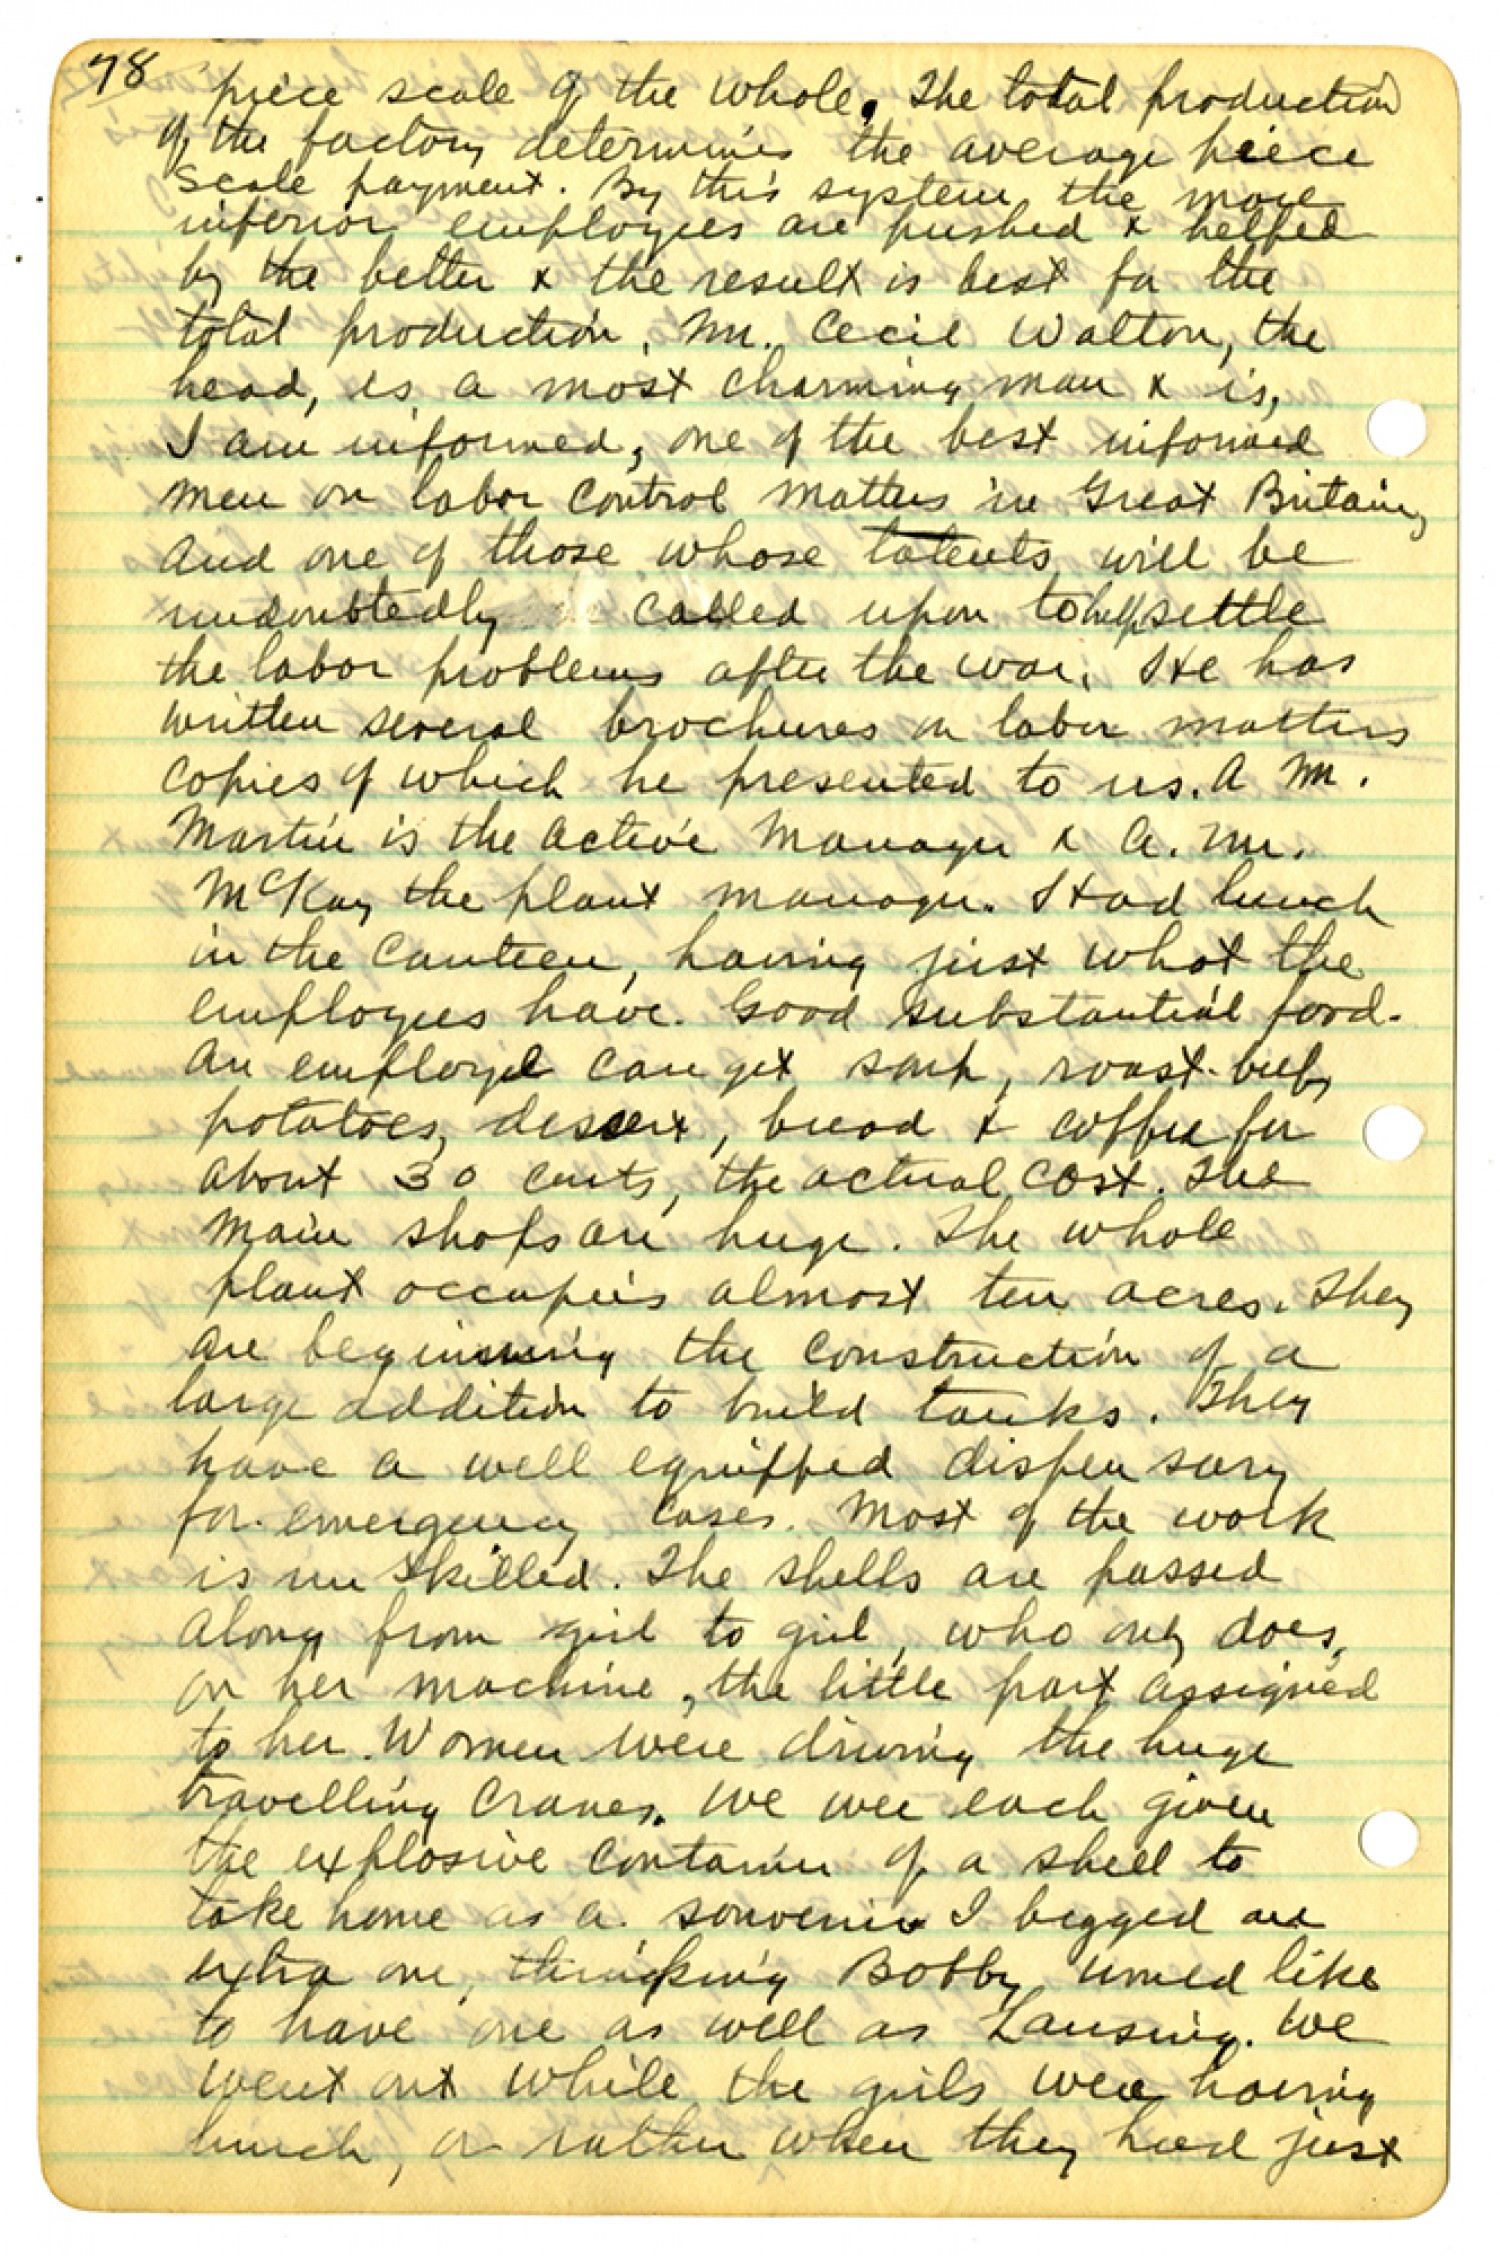 78
piece scale of the whole. The total production
of the factory determines the average piece
scale payment. By this system the more
inferior employees are pushed & helped
by the better & the result is best for the
total production. Mr. Cecil Walton, the
head, is a most charming man & is,
I am informed, one of the best informed
men on labor control matters in Great Britain,
and one of those whose talents will be
undoubtedly called upon to help settle
the labor problems after the war. He has
written several brochures on labor matters
copies of which he presented to us. A Mr.
Martin is the active manager & a. Mr.
McKay the plant manager. Had lunch
in the canteen, having just what the
employees have. Good substantial food.
An employe can get soup, roast-beef,
potatoes, dessert, bread & coffee for
about 30 cents, the actual cost. The
main shops are huge. The whole
plant occupies almost ten acres. They
are beginning the construction of a
large addition to build tanks. They
have a well equipped dispensary
for emergency cases. Most of the work
is unskilled. The shells are passed
along from girl to girl, who only does,
on her machine, the little part assigned
to her. Women were driving the huge
travelling cranes. We were each given
the explosive container of a shell to
take home as a souvenir I begged an
extra one, thinking Bobby would like
to have one as well as Lansing. We
went out while the girls were having
lunch, or rather when they had just